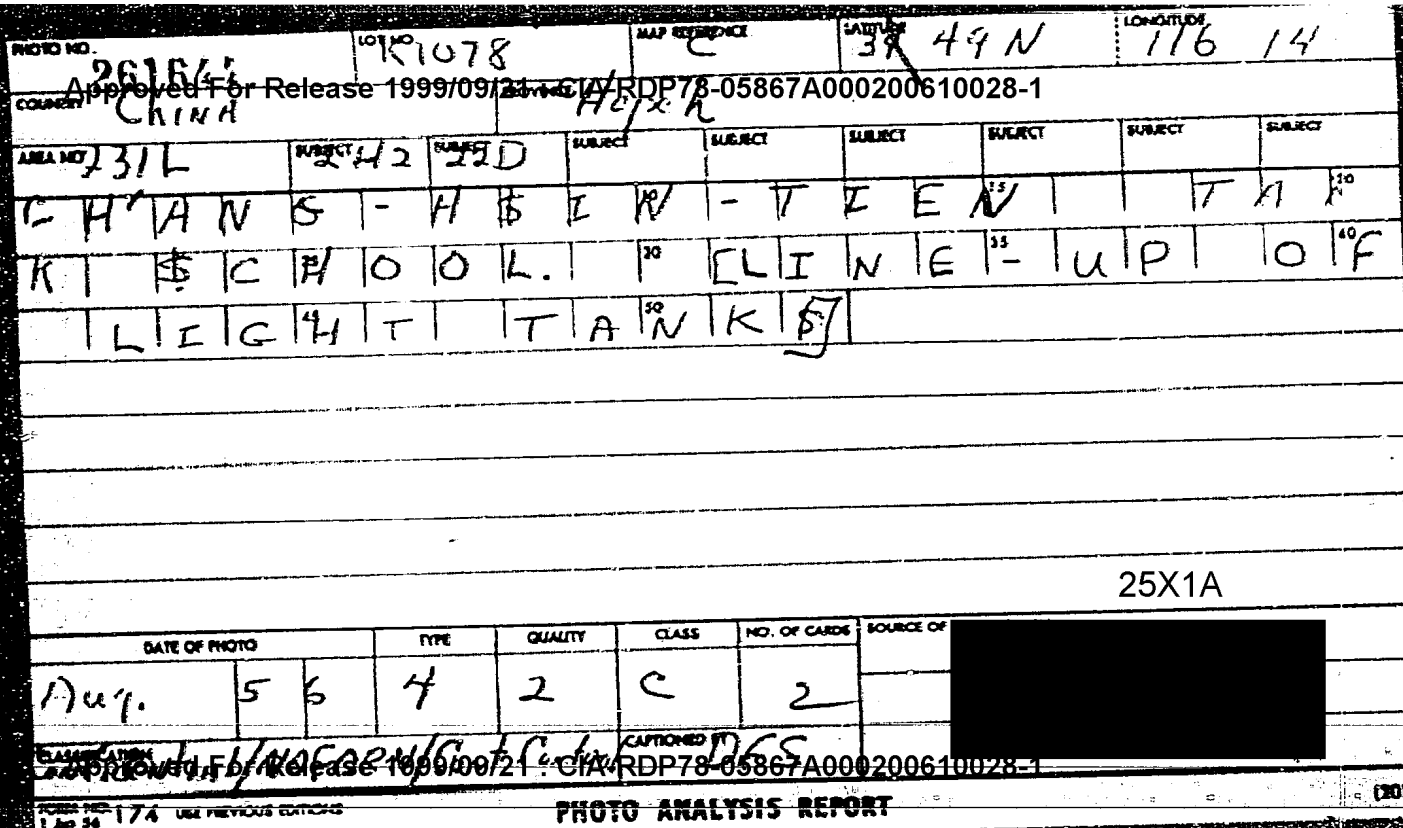 PHOTO NO. LOT NO. K1078 MAP REFERENCE C LATITUDE 49 N LONGITUDE 116 14
Approved For Release 1999/09/21 : CIA-RDP78-05867A000200610028-1
COUNTRY CHINA
AREA NO 731L SUBJECT 2H2 SUBJECT 22D SUBJECT SUBJECT SUBJECT SUBJECT SUBJECT SUBJECT
CH'ANG-HSIN-TIEN TAN
K SCHOOL. [LINE-UP OF
LIGHT TANKS]
25X1A
DATE OF PHOTO TYPE QUALITY CLASS NO. OF CARDS SOURCE OF
Aug. 56 4 2 C 2
CLASSIFICATION CAPTIONED BY
Approved For Release 1999/09/21 : CIA-RDP78-05867A000200610028-1
FORM NO. 174 USE PREVIOUS EDITIONS PHOTO ANALYSIS REPORT (20
1 Jan 54